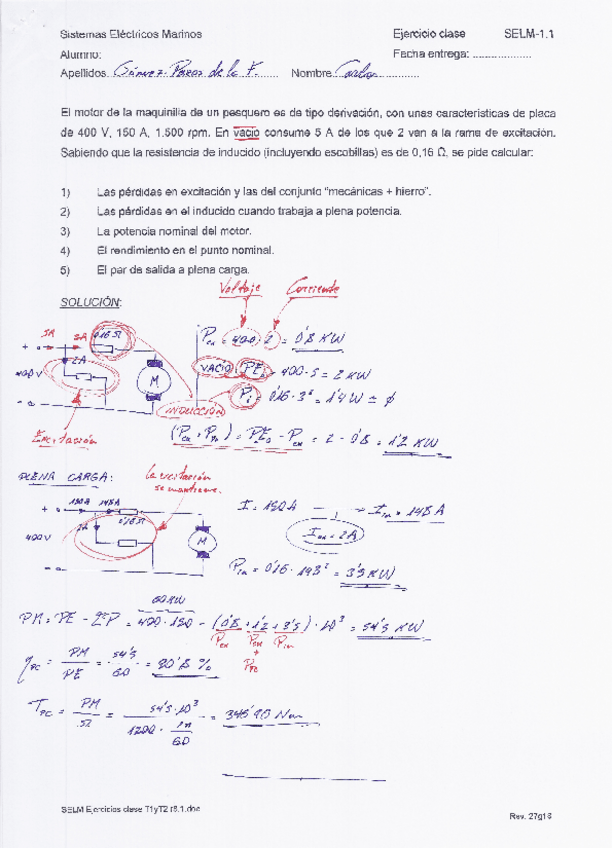 Sistemas Eléctricos Marinos Ejercicio clase SELM-1.1
Alumno: Fecha entrega: ....................
Apellidos. Gómez-Pérez de la F. Nombre Carlos
El motor de la maquinilla de un pesquero es de tipo derivación, con unas características de placa
de 400 V, 150 A, 1.500 rpm. En vacío consume 5 A de los que 2 van a la rama de excitación.
Sabiendo que la resistencia de inducido (incluyendo escobillas) es de 0,16 Ω, se pide calcular:
1) Las pérdidas en excitación y las del conjunto “mecánicas + hierro”.
2) Las pérdidas en el inducido cuando trabaja a plena potencia.
3) La potencia nominal del motor.
4) El rendimiento en el punto nominal.
5) El par de salida a plena carga.
Voltaje Corriente
SOLUCIÓN:
5A 0'16 Ω
2A
400V M
Pex = 400 · 2 = 0'8 KW
VACÍO PEo = 400 · 5 = 2 KW
Pi = 0'16 · 3² = 1'4 W ≈ ϕ
INDUCCIÓN
Excitación
= PEo - Pex = 2 - 0'8 = 1'2 KW
PLENA CARGA: la excitación
se mantiene.
150A 148A
0'16Ω
2A
400V M
I = 150A → Iin = 148 A
Iex = 2A
Pin = 0'16 · 148² = 3'5 KW
60KW
PM = PE - ΣP = 400 · 150 - (0'8 + 1'2 + 3'5) · 10³ = 54'5 KW
Pex Pin
+
ηPC = PM / PE = 54'5 / 60 = 90'8 %
TPC = PM / Ω = 54'5 · 10³ / = 346'95 Nm
60
SELM Ejercicios clase T1yT2 r8.1.doc
Rev. 27g18